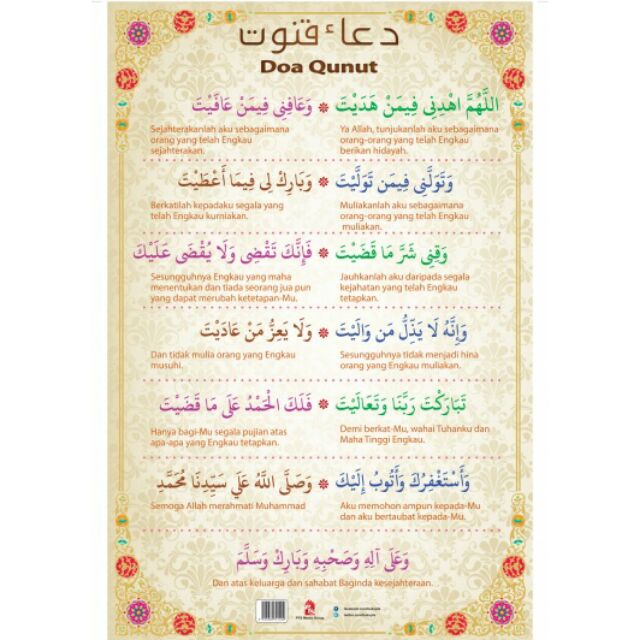 دعاء قنوت
Doa Qunut
اللَّهُمَّ اهْدِنِي فِيمَنْ هَدَيْتَ * وَعَافِنِي فِيمَنْ عَافَيْتَ
Ya Allah, tunjukanlah aku sebagaimana
orang-orang yang telah Engkau
berikan hidayah.
Sejahterakanlah aku sebagaimana
orang yang telah Engkau
sejahterakan.
وَتَوَلَّنِي فِيمَن تَوَلَّيْتَ * وَبَارِكْ لِي فِيمَا أَعْطَيْتَ
Muliakanlah aku sebagaimana
orang-orang yang telah Engkau
muliakan.
Berkatilah kepadaku segala yang
telah Engkau kurniakan.
وَقِنِي شَرَّ مَا قَضَيْتَ * فَإِنَّكَ تَقْضِي وَلَا يُقْضَى عَلَيْكَ
Jauhkanlah aku daripada segala
kejahatan yang telah Engkau
tetapkan.
Sesungguhnya Engkau yang maha
menentukan dan tiada seorang jua pun
yang dapat merubah ketetapan-Mu.
وَإِنَّهُ لَا يَذِلُّ مَن وَالَيْتَ * وَلَا يَعِزُّ مَنْ عَادَيْتَ
Sesungguhnya tidak menjadi hina
orang yang Engkau muliakan.
Dan tidak mulia orang yang Engkau
musuhi.
تَبَارَكْتَ رَبَّنَا وَتَعَالَيْتَ * فَلَكَ الْحَمْدُ عَلَى مَا قَضَيْتَ
Demi berkat-Mu, wahai Tuhanku dan
Maha Tinggi Engkau.
Hanya bagi-Mu segala pujian atas
apa-apa yang Engkau tetapkan.
وَأَسْتَغْفِرُكَ وَأَتُوبُ إِلَيْكَ * وَصَلَّى اللَّهُ عَلَي سَيِّدِنَا مُحَمَّدٍ
Aku memohon ampun kepada-Mu
dan aku bertaubat kepada-Mu.
Semoga Allah merahmati Muhammad
وَعَلَى آلِهِ وَصَحْبِهِ وَبَارِكْ وَسَلَّمَ
Dan atas keluarga dan sahabat Baginda kesejahteraan...